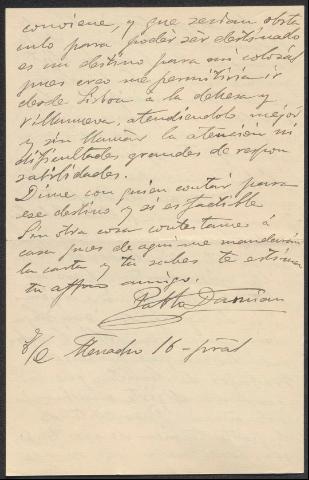 conviene, y que serian obsta
culo para poder ser destinado
es un destino para mi colosal
pues creo me permitiria ir
desde Lisboa á la dehesa y
Villanueva, atendiendolo mejor
y sin llamar la atencion ni
dificultades grandes de respon
sabilidades.
Dime con quien contar para
ese destino y si es factible
Sin otra cosa contestame á
casa pues de aqui me mandarán
la carta y tu sabes te estima
tu affmo amigo.
Pablo Damian
S/C 16 - pral